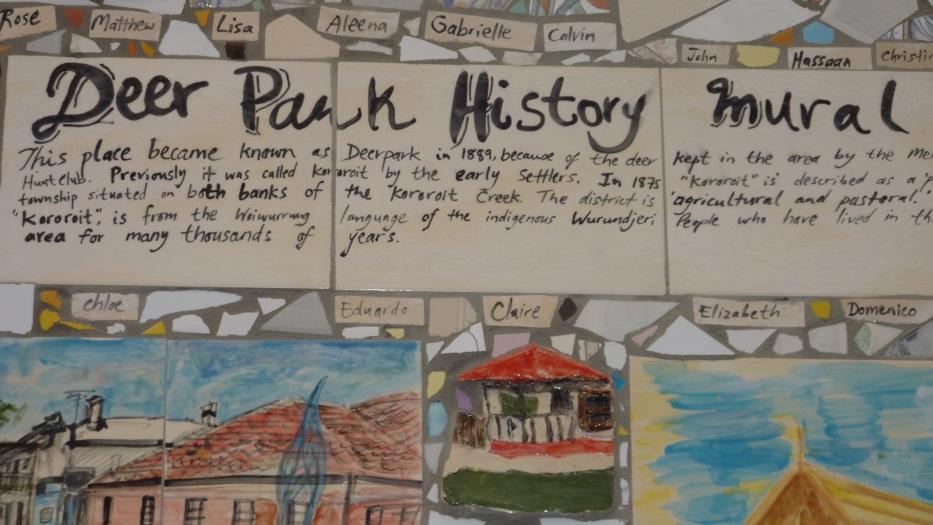 Rose Matthew Lisa Aleena Gabrielle Calvin
John Hassaan
Deer Park History Mural
This place became known as Deerpark in 1889, because of the deer kept in the area by the
Hunt Club. Previously it was called Kororoit by the early settlers. In 1875 "Kororoit" is described as a
township situated on both banks of the Kororoit Creek. The district is agricultural and pastoral.
"Kororoit" is from the Woiwurrung language of the indigenous Wurundjeri People who have lived in
area for many thousands of years.
chloe Eduardo Claire Elizabeth Domenico